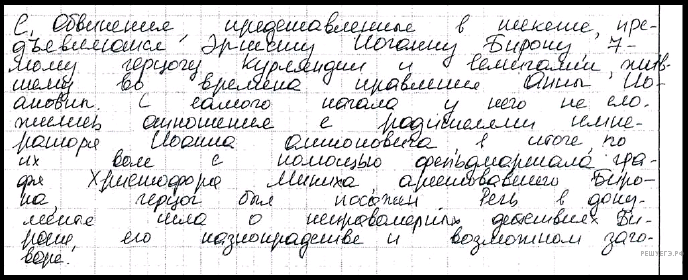 С. Обвинения, представленные в тексте, пре-
дъявляются Эрнсту Иоганну Бирону 7-
мому герцогу Курляндии и Семигалии, жив-
шему во времена правления Анны Ио-
ановны. С самого начала у него не сло-
жились отношения с родителями импе-
ратора Иоанна Антоновича, в итоге, по
их воле с помощью фельдмаршала гра-
фа Христофора Миниха арестовавшего Биро-
на, герцог был посажен. Речь в доку-
менте шла о неправомерных действиях Би-
рона, его казнокрадстве и возможном заго-
воре.
РЕШУЕГЭ.РФ